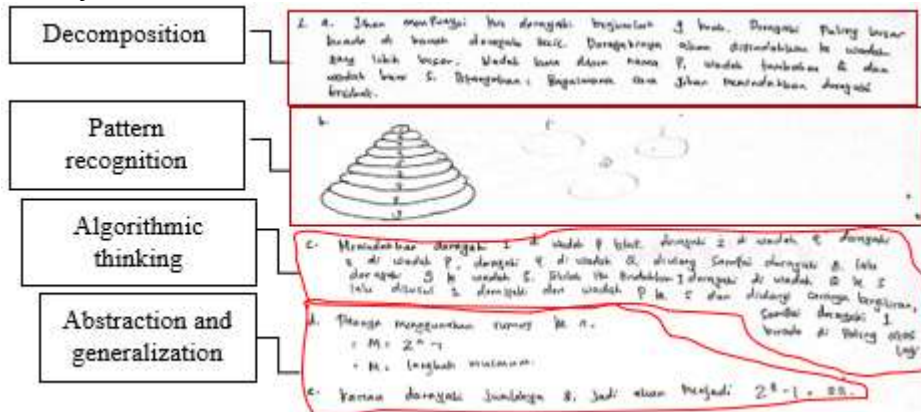 Decomposition
Pattern recognition
Algorithmic thinking
Abstraction and generalization
1. a. Jihan mempunyai kue dorayaki berjumlah 9 buah. Dorayaki Paling besar
berada di bawah dorayaki kecil. Dorayakinya akan dipindahkan ke wadah
yang lebih besar. Wadah diberi nama P, wadah tambahan Q dan
wadah baru S. Bagaimana cara Jihan memindahkan dorayaki
tersebut.
b.
c. Memindahkan dorayaki 1 di wadah P dorayaki 2 di wadah Q dorayaki
3 di wadah P, dorayaki 4 di wadah Q, diulang sampai dorayaki 8. lalu
dorayaki 9 ke wadah S. Setelah itu pindahkan 1 dorayaki di wadah Q ke S
lalu disusul 1 dorayaki dari wadah P ke S dan diulangi secara bergiliran
sampai dorayaki 1
berada di Paling atas
lagi
d. menggunakan rumus ke n.
= M = 2ⁿ - 1
= M = langkah minimum
e. Karena dorayaki jumlahnya 8, jadi akan menjadi 2⁸ - 1 =